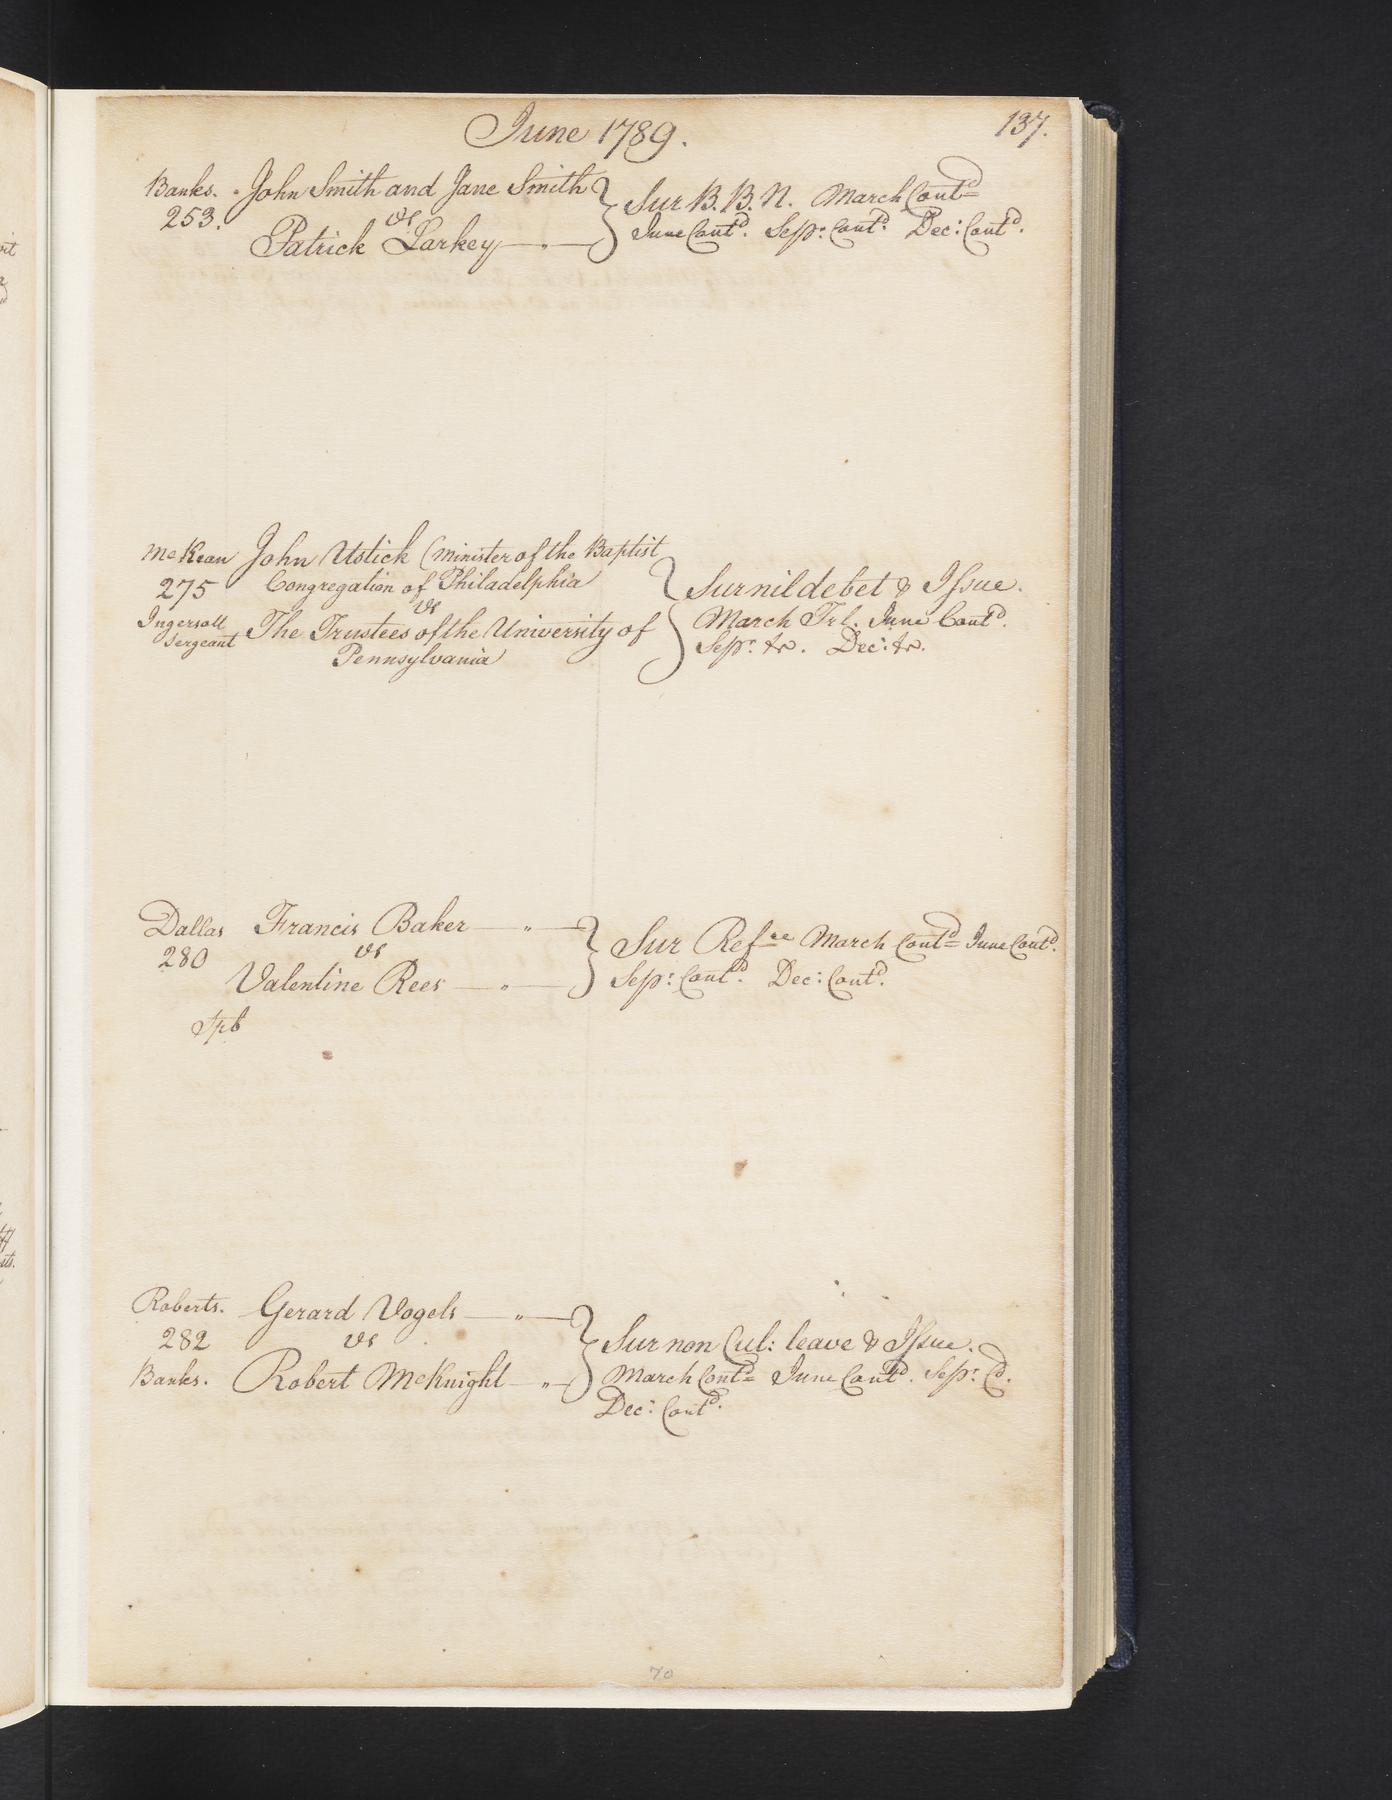 June 1789.
137.
Banks. John Smith and Jane Smith
253. vs
Patrick Larkey
Sur B. B. N. March Contd
June Contd. Sepr: Contd. Dec: Contd.
McKean John Ustick (minister of the Baptist
275 Congregation of Philadelphia
vs
Ingersoll The Trustees of the University of
Sergeant
Pennsylvania
Sur nil debet & Issue.
March Trl. June Contd.
Sepr: &c. Dec: &c.
Dallas Francis Baker
280 vs
Valentine Rees
Sur Refee March Contd June Contd.
Sepr: Contd. Dec: Contd.
Roberts. Gerard Vogels
282 vs
Banks. Robert McKnight
Sur non Cul: leave & Issue.
March Contd June Contd. Sepr: Cd.
Dec: Contd.
70